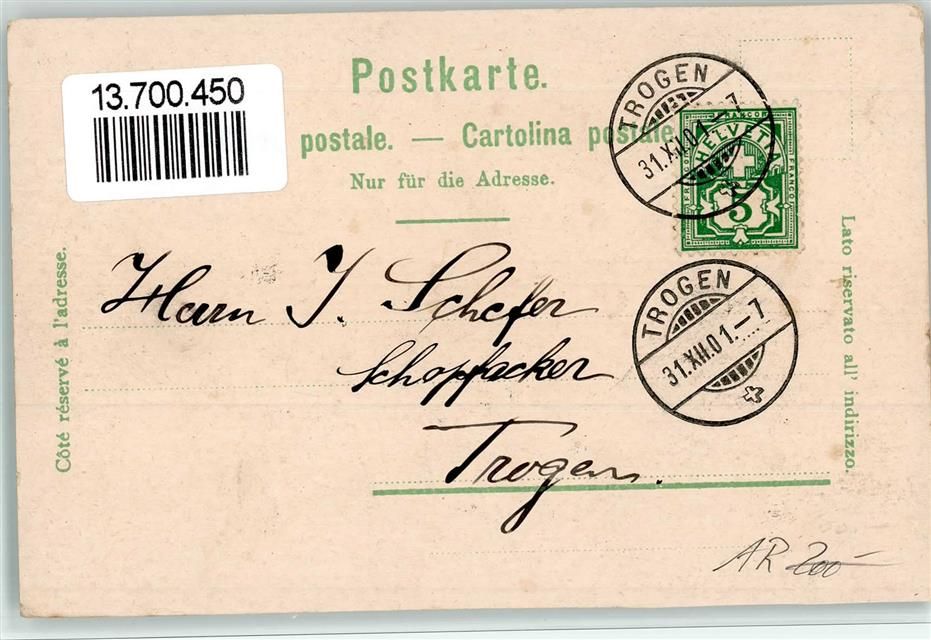 13.700.450
Postkarte.
postale. — Cartolina postale
Nur für die Adresse.
TROGEN
31.XII.01—7
FRANCO
HELVETIA
5
Côté réservé à l'adresse.
Lato riservato all' indirizzo.
Herrn J. Schefer
Schopfacker
Trogen.
TROGEN
31.XII.01—7
AR 200